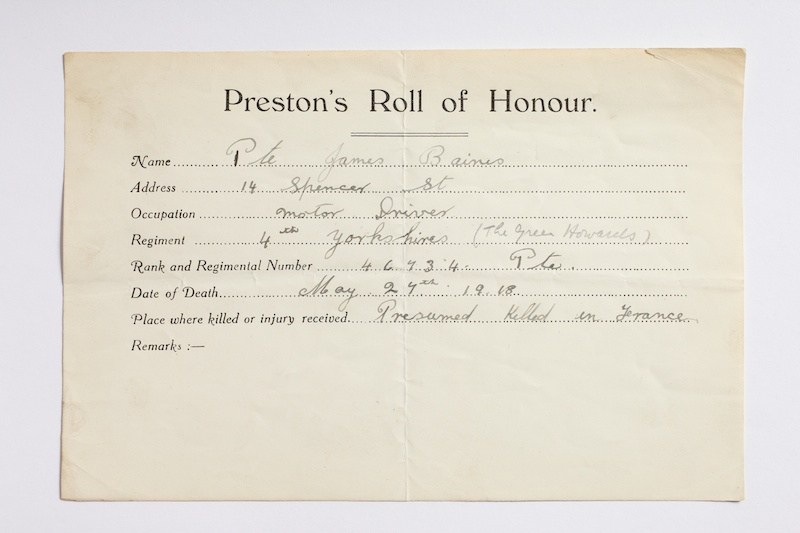 Preston's Roll of Honour.
Name Pte James Baines
Address 14 Spencer St
Occupation motor Driver
Regiment 4th Yorkshires (The Green Howards)
Rank and Regimental Number 46734. Pte.
Date of Death May 27th 1918
Place where killed or injury received. Presumed killed in France
Remarks :—